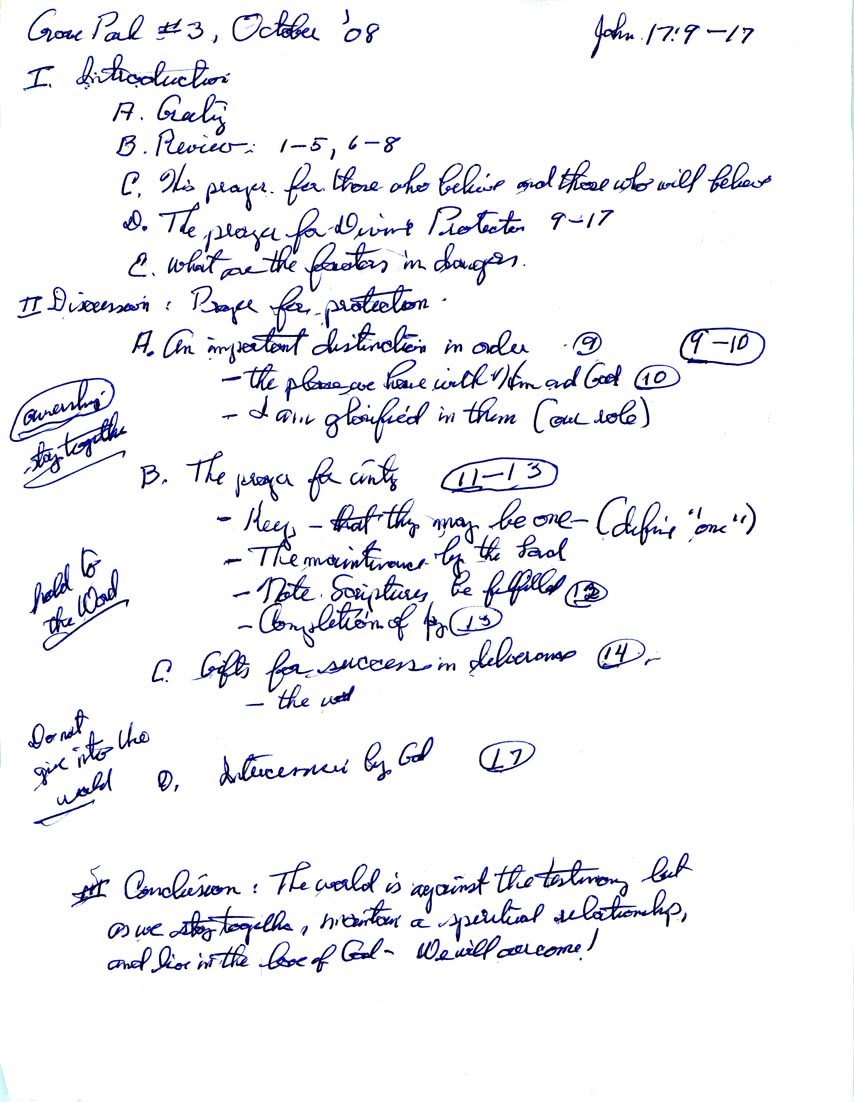 Grove Park #3, October '08
John 17:9-17
I. Introduction
A. Greeting
B. Review: 1-5, 6-8
C. His prayer for those who believe and those who will believe
D. The prayer for Divine Protection 9-17
E. What are the factors in dangers.
II Discussion: Prayer for protection.
A. An important distinction in order (9) (9-10)
- the place we have with Him and God (10)
- I am glorified in them (our role)
ownership
stay together
B. The prayer for unity (11-13)
- Keep - that they may be one - (define "one")
- The maintenance by the Lord
- Note Scriptures be fulfilled (12)
- Completion of joy (13)
hold to
the Word
C. Gifts for success in deliverance (14)
- the word
Do not
give into the
world
D. Intercession by God (17)
III Conclusion: The world is against the testimony but
as we stay together, maintain a spiritual relationship,
and live in the love of God - We will overcome!